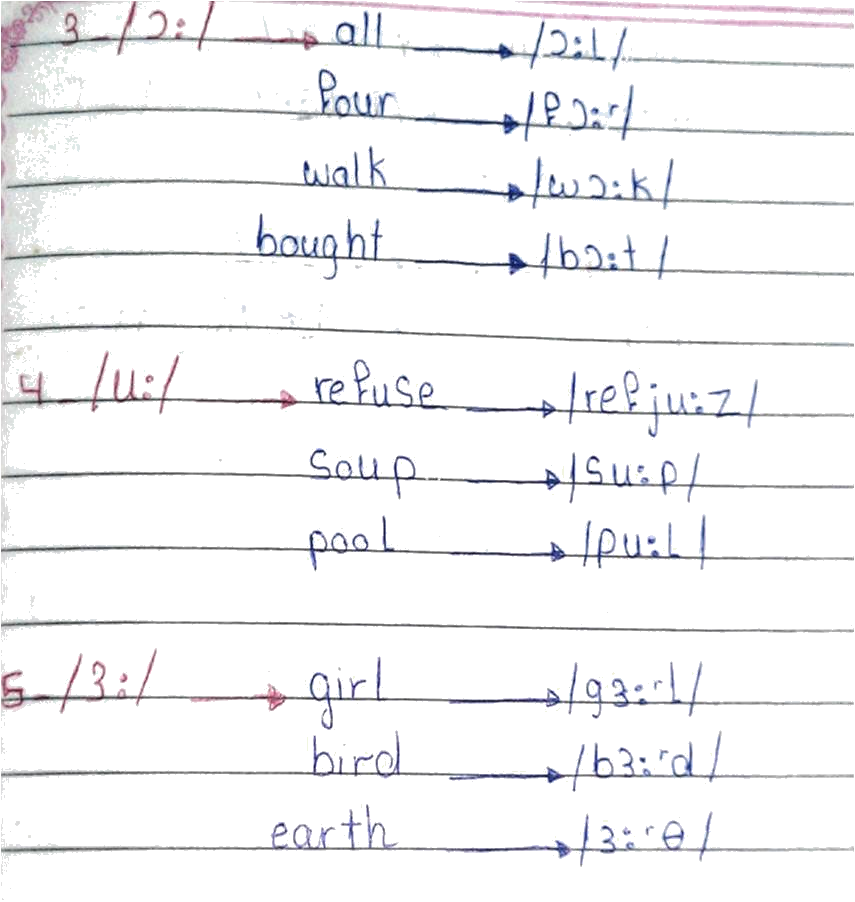 3 _ /ɔ:/ → all → /ɔ:L/
four → /fɔ:ʳ/
walk → /wɔ:k/
bought → /bɔ:t/
4 _ /u:/ → refuse → /refju:z/
soup → /su:p/
pool → /pu:L/
5 _ /ɜ:/ → girl → /gɜ:ʳL/
bird → /bɜ:ʳd/
earth → /ɜ:ʳθ/